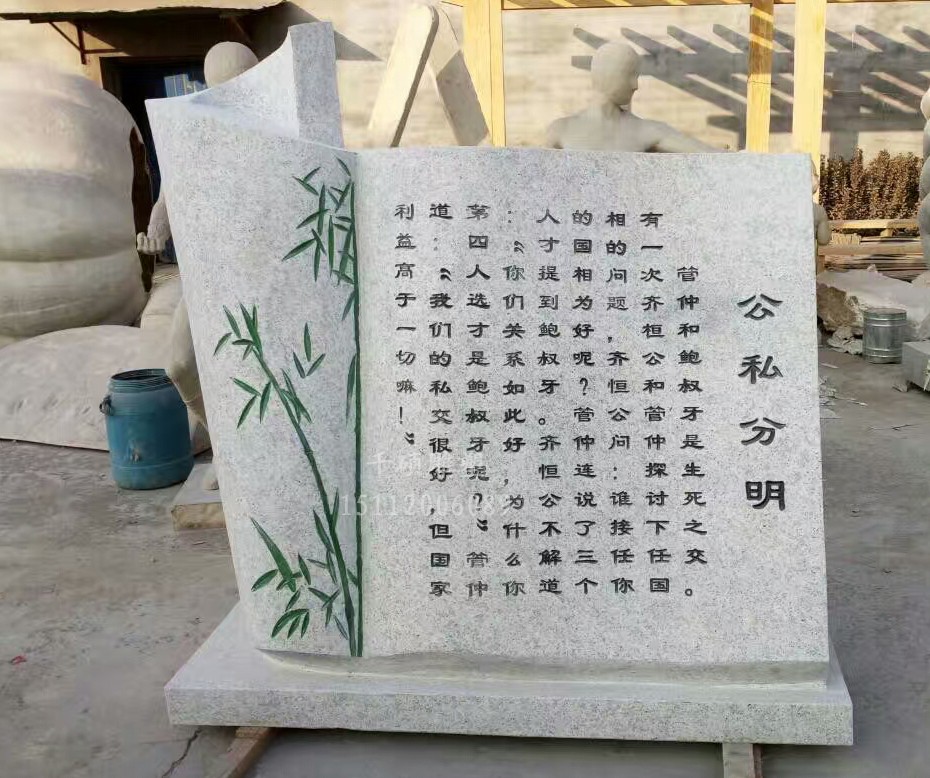 公私分明
管仲和鲍叔牙是生死之交。
有一次齐桓公和管仲探讨下任国
相的问题,齐恒公问:谁接任你
的国相为好呢?管仲连说了三个
人才提到鲍叔牙。齐恒公不解道
:“你们关系如此好,为什么你
第四人选才是鲍叔牙呢?”管仲
道:“我们的私交很好 但国家
利益高于一切嘛!”